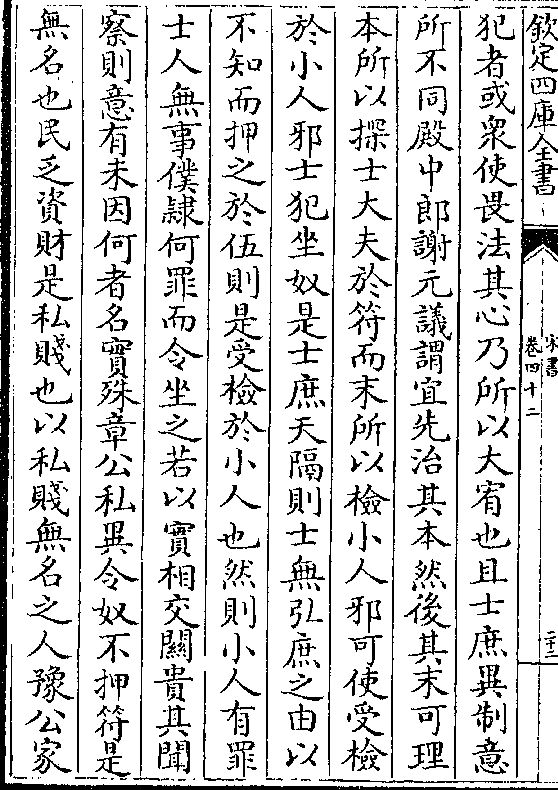 欽定四庫全書
宋書
卷四十二
二十二
犯者或衆使畏法其心乃所以大宥也且士庶異制意
所不同殿中郎謝元議謂宜先治其本然後其末可理
本所以探士大夫於符而末所以檢小人邪可使受檢
於小人邪士犯坐奴是士庶天隔則士無弘庶之由以
不知而押之於伍則是受檢於小人也然則小人有罪
士人無事僕隸何罪而令坐之若以實相交關貴其聞
察則意有未因何者名實殊章公私異令奴不押符是
無名也民乏資財是私賤也以私賤無名之人豫公家